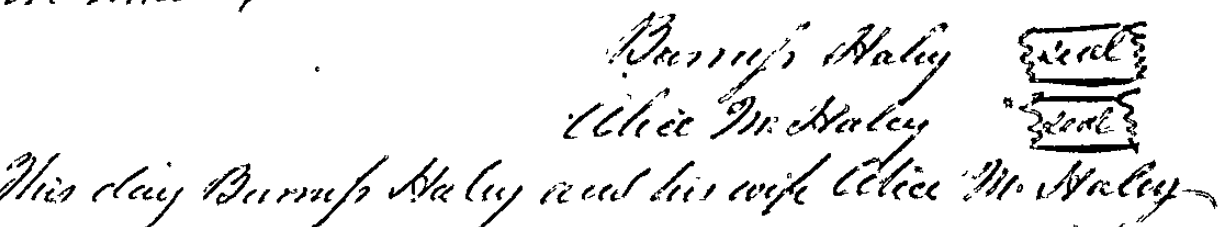 Burruss Haley Seal
Alice M. Haley Seal
This day Burruss Haley and his wife Alice M. Haley